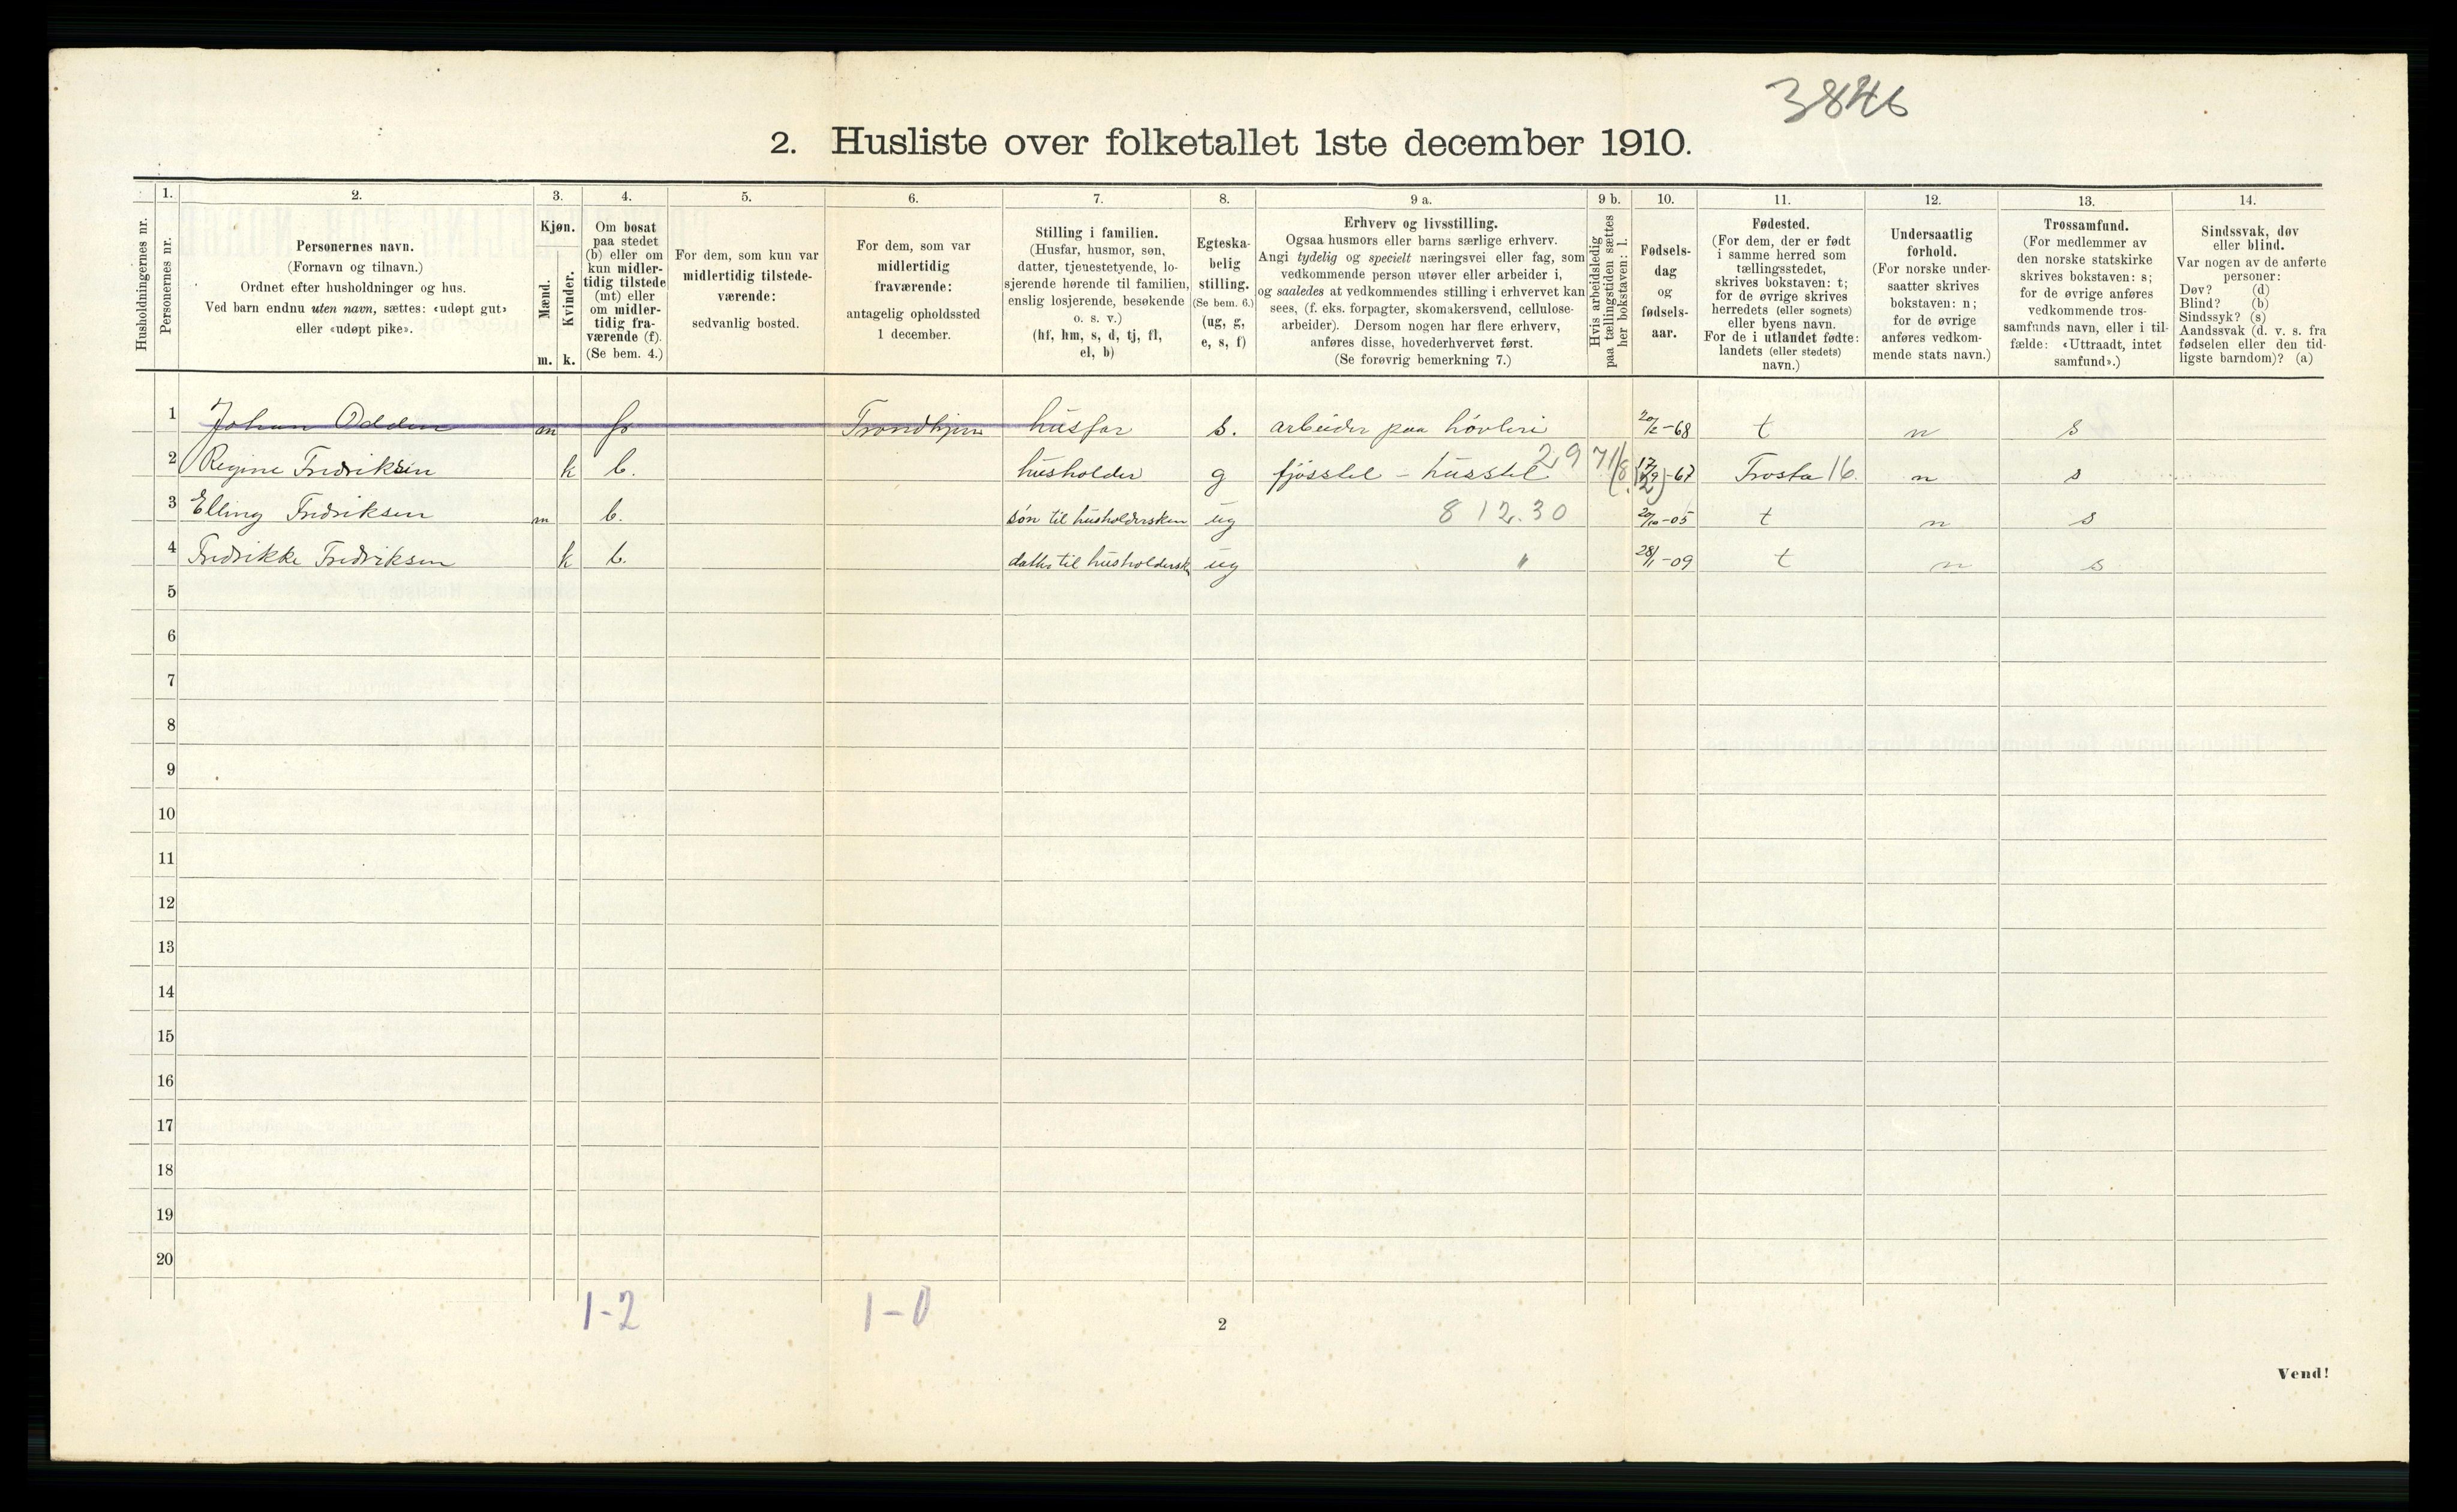 3846
2. Husliste over folketallet 1ste december 1910.
Husholdningernes nr.
1.
Personernes nr.
2.
Personernes navn.
(Fornavn og tilnavn.)
Ordnet efter husholdninger og hus.
Ved barn endnu uten navn, sættes: «udøpt gut»
eller «udøpt pike».
3.
Kjøn.
Mænd.
Kvinder.
m. k.
4.
Om bosat
paa stedet
(b) eller om
kun midler-
tidig tilstede
(mt) eller
om midler-
tidig fra-
værende (f).
(Se bem. 4.)
5.
For dem, som kun var
midlertidig tilstede-
værende:
sedvanlig bosted.
6.
For dem, som var
midlertidig
fraværende:
antagelig opholdssted
1 december.
7.
Stilling i familien.
(Husfar, husmor, søn,
datter, tjenestetyende, lo-
sjerende hørende til familien,
enslig losjerende, besøkende
o. s. v.)
(hf, hm, s, d, tj, fl,
el, b)
8.
Egteska-
belig
stilling.
(Se bem. 6.)
(ug, g,
e, s, f)
9 a.
Erhverv og livsstilling.
Ogsaa husmors eller barns særlige erhverv.
Angi tydelig og specielt næringsvei eller fag, som
vedkommende person utøver eller arbeider i,
og saaledes at vedkommendes stilling i erhvervet kan
sees, (f. eks. forpagter, skomakersvend, cellulose-
arbeider). Dersom nogen har flere erhverv,
anføres disse, hovederhvervet først.
(Se forøvrig bemerkning 7.)
9 b.
Hvis arbeidsledig
paa tællingstiden sættes
her bokstaven: l.
10.
Fødsels-
dag
og
fødsels-
aar.
11.
Fødested.
(For dem, der er født
i samme herred som
tællingsstedet,
skrives bokstaven: t;
for de øvrige skrives
herredets (eller sognets)
eller byens navn.
For de i utlandet fødte:
landets (eller stedets)
navn.)
12.
Undersaatlig
forhold.
(For norske under-
saatter skrives
bokstaven: n;
for de øvrige
anføres vedkom-
mende stats navn.)
13.
Trossamfund.
(For medlemmer av
den norske statskirke
skrives bokstaven: s;
for de øvrige anføres
vedkommende tros-
samfunds navn, eller i til-
fælde: «Uttraadt, intet
samfund».)
14.
Sindssvak, døv
eller blind.
Var nogen av de anførte
personer:
Døv? (d)
Blind? (b)
Sindssyk? (s)
Aandssvak (d. v. s. fra
fødselen eller den tid-
ligste barndom)? (a)
1 Johan Odden m f Trondhjem husfar s. arbeider paa høvleri 20/2-68 t n s
2 Regine Fredriksen k b. husholder g fjösstel - husstel 29 -67 Frosta 16 n s
3 Elling Fredriksen m b. søn til husholdersken ug 8 12.30 20/10-05 t n s
4 Fredrikke Fredriksen k b. datter til husholdersk ug " 28/1-09 t n s
5
6
7
8
9
10
11
12
13
14
15
16
17
18
19
20
1-2 1-0
2
Vend!